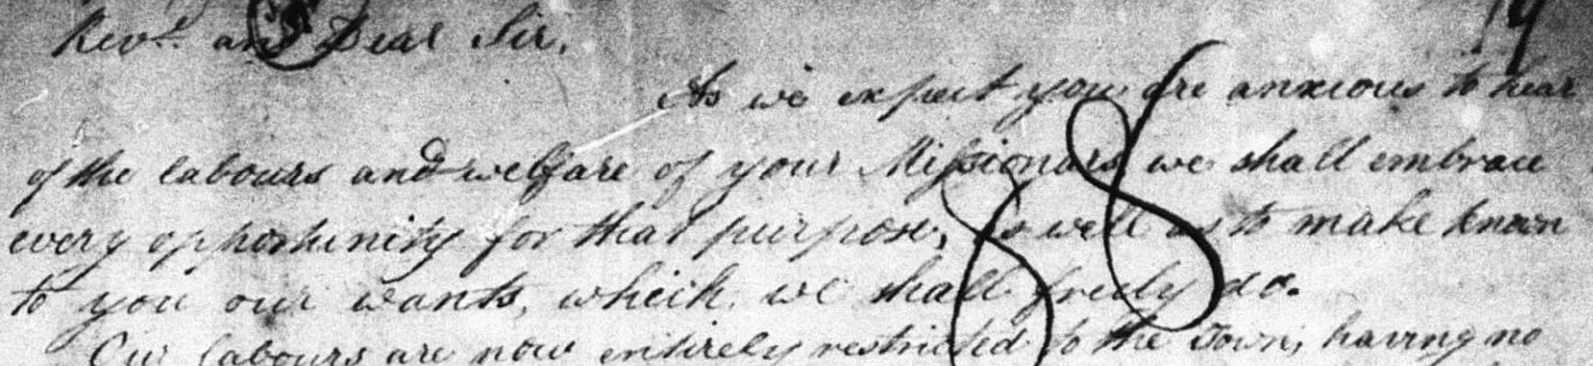 Revd. and Dear Sir,
As we expect you are anxious to hear
of the labours and welfare of your Missionars we shall embrace
every opportunity for that purpose, as well as to make known
to you our wants, which we shall freely do.
Our labours are now entirely restricted to the Town, having no